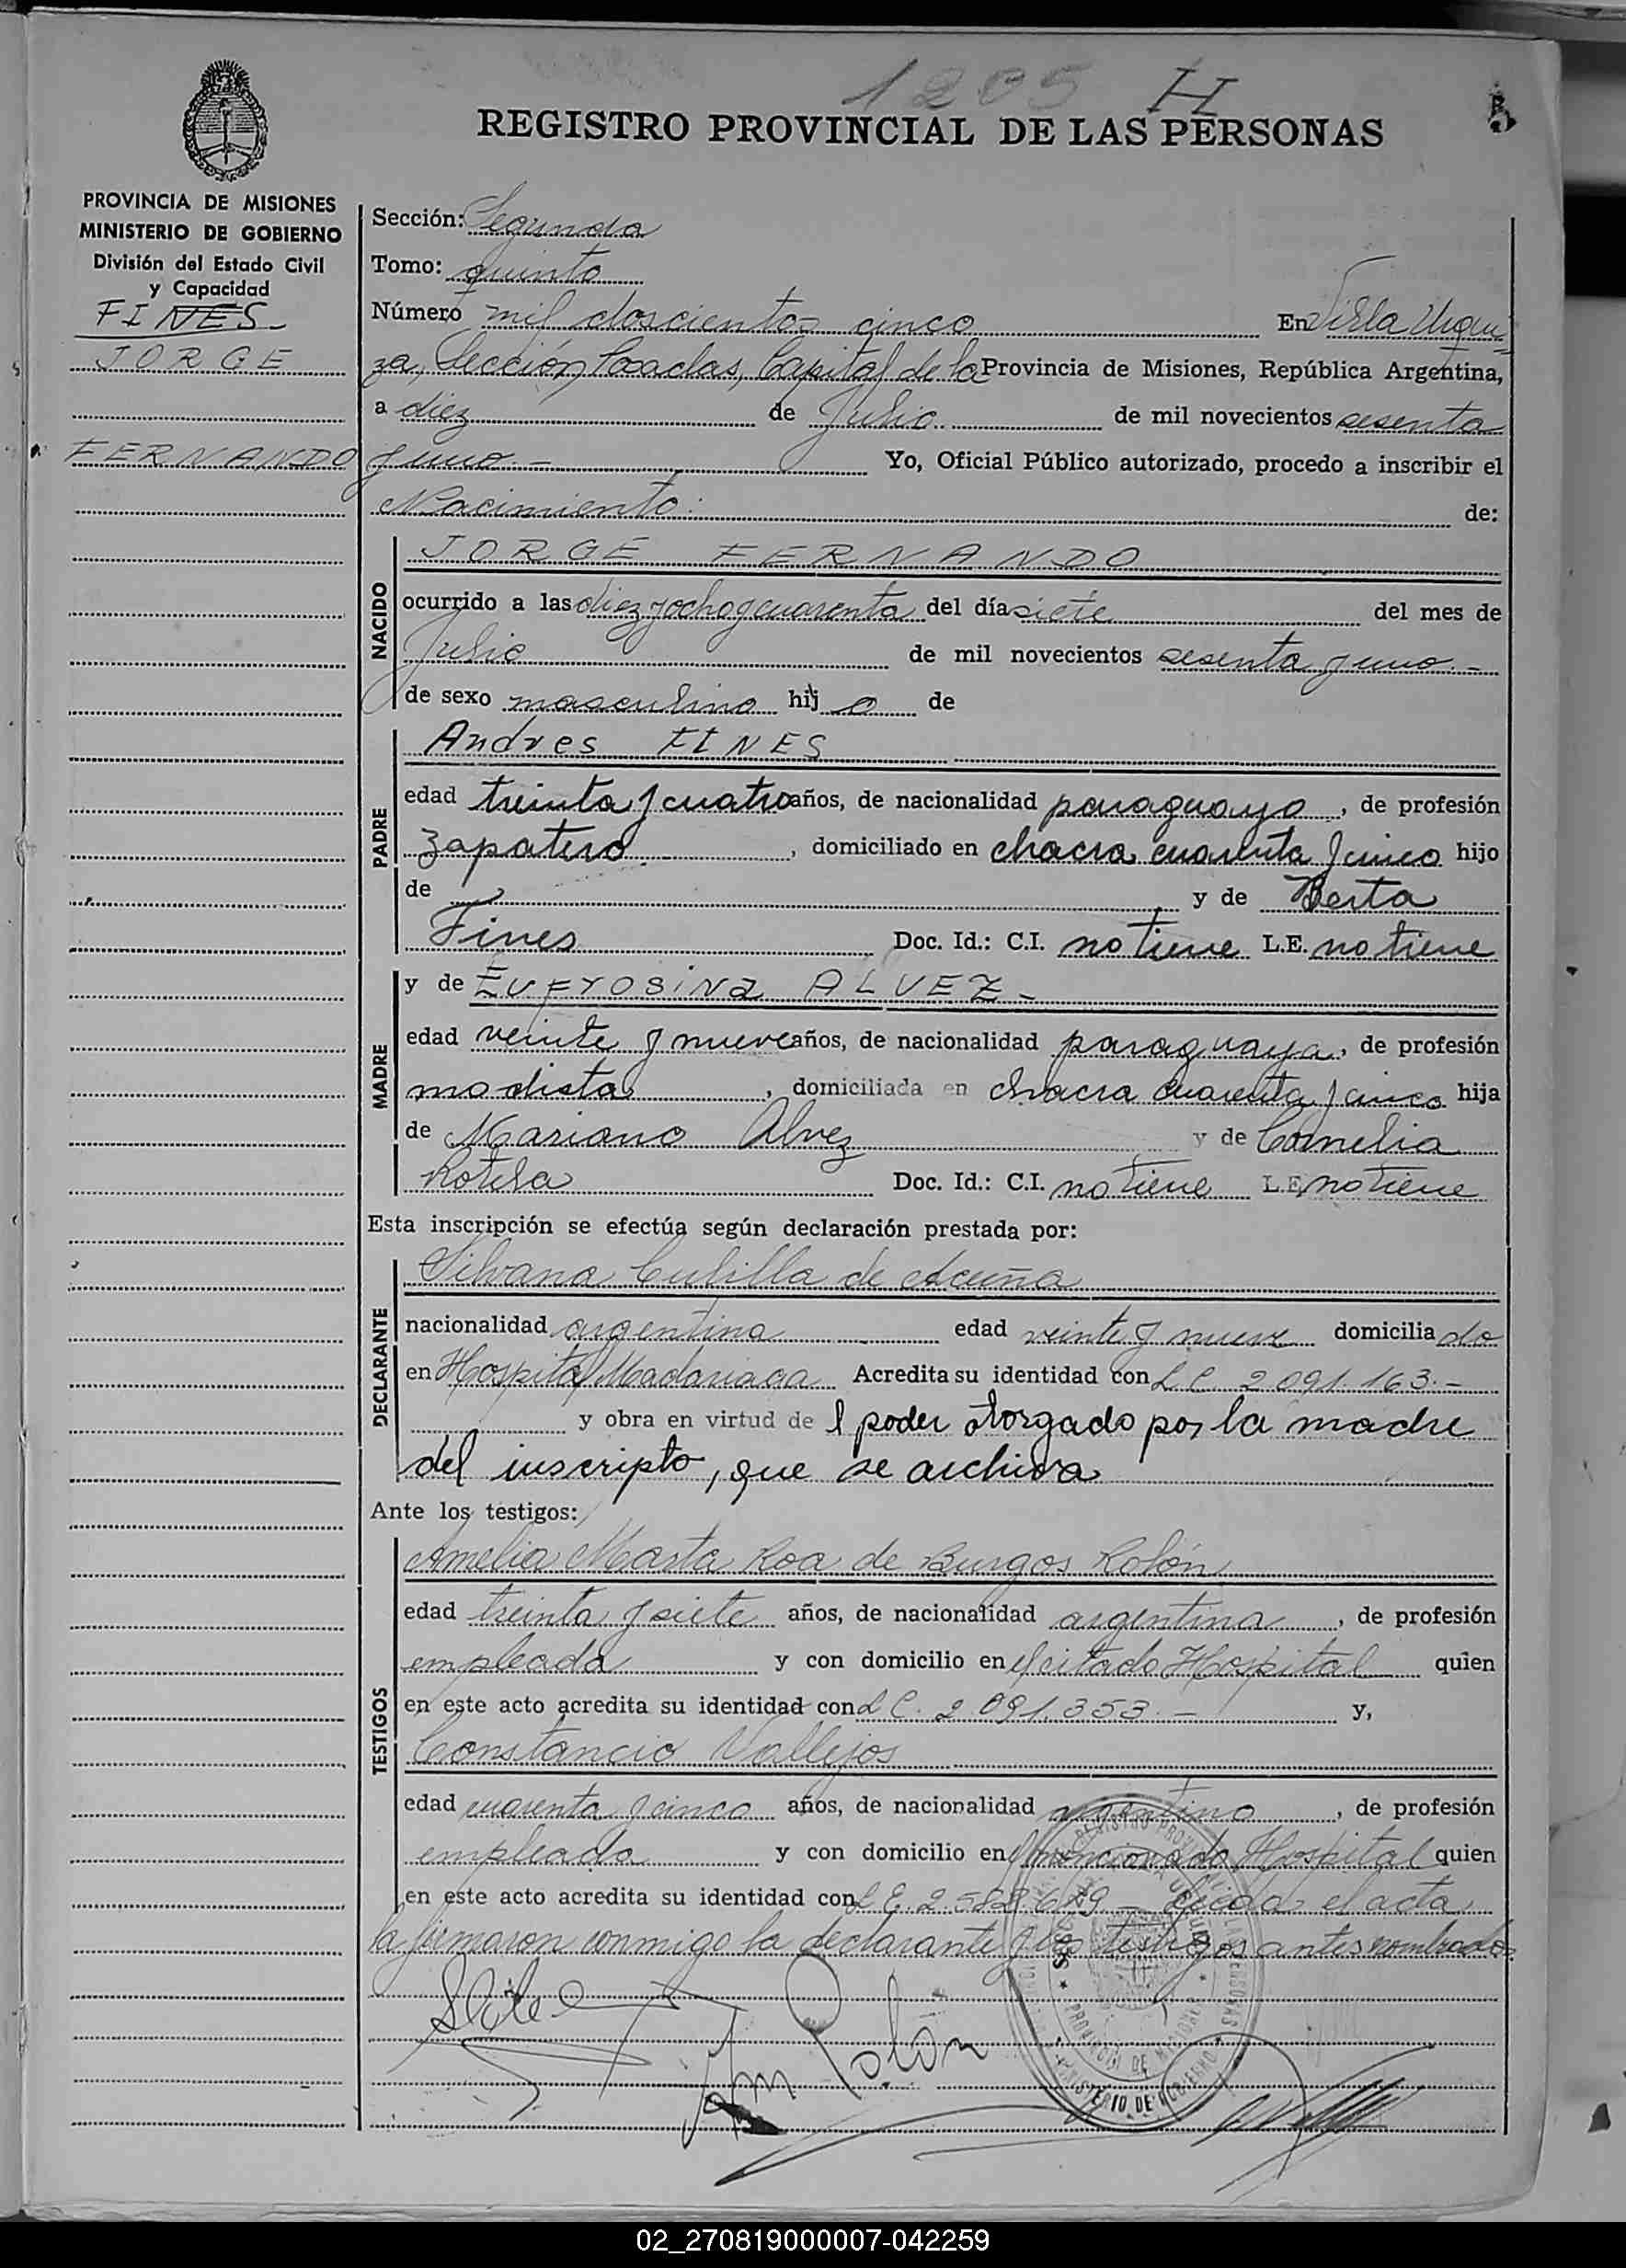 1205 H
5
REGISTRO PROVINCIAL DE LAS PERSONAS
PROVINCIA DE MISIONES
MINISTERIO DE GOBIERNO
División del Estado Civil
y Capacidad
FINES
JORGE
FERNANDO
Sección: Segunda
Tomo: quinto
Número mil doscientos cinco En Villa Urqui
za, Sección Posadas, Capital de la Provincia de Misiones, República Argentina,
a diez de Julio de mil novecientos sesenta
y uno.- Yo, Oficial Público autorizado, procedo a inscribir el
Nacimiento: de:
NACIDO
JORGE FERNANDO
ocurrido a las diez y ocho y cuarenta del día siete del mes de
Julio de mil novecientos sesenta y uno.-
de sexo masculino hijo de
PADRE
Andres FINES
edad treinta y cuatro años, de nacionalidad paraguayo, de profesión
zapatero, domiciliado en chacra cuarenta y cinco hijo
de y de Berta
Fines Doc. Id.: C.I. no tiene L.E. no tiene
MADRE
y de Eufrosina ALVEZ-
edad veinte y nueve años, de nacionalidad paraguaya, de profesión
modista, domiciliada en chacra cuarenta y cinco hija
de Mariano Alvez y de Cornelia
Rotela Doc. Id.: C.I. no tiene L.E. no tiene
Esta inscripción se efectúa según declaración prestada por:
DECLARANTE
Silvana Cubilla de Acuña
nacionalidad argentina edad veinte y nueve domiciliado
en Hospital Madariaga Acredita su identidad con L.C. 2.091.163.-
y obra en virtud del poder otorgado por la madre
del inscripto, que se archiva
Ante los testigos:
TESTIGOS
Amelia Marta Roa de Burgos Rolón
edad treinta y siete años, de nacionalidad argentina, de profesión
empleada y con domicilio en el citado Hospital quien
en este acto acredita su identidad con L.C. 2.091.353.- y,
Constancio Vallejos
edad cuarenta y cinco años, de nacionalidad argentino, de profesión
empleado y con domicilio en el mencionado Hospital quien
en este acto acredita su identidad con L.E. Leida el acta
la firmaron conmigo la declarante y los testigos antes nombrados
Rolón
MINISTERIO DE GOBIERNO
02_270819000007-042259